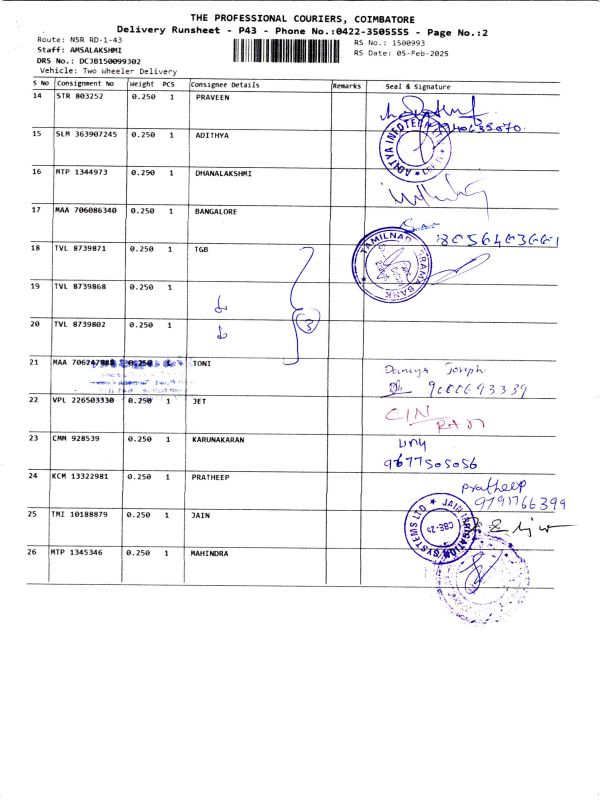 THE PROFESSIONAL COURIERS, COIMBATORE
Delivery Runsheet - P43 - Phone No.:0422-3505555 - Page No.:2
Route: NSR RD-1-43
Staff: AMSALAKSHMI
DRS No.: DCJB150099302
Vehicle: Two Wheeler Delivery
RS No.: 1500993
RS Date: 05-Feb-2025
S No Consignment No Weight PCS Consignee Details Remarks Seal & Signature
14 STR 803252 0.250 1 PRAVEEN
15 SLM 363907245 0.250 1 ADITHYA
16 MTP 1344973 0.290 1 DHANALAKSHMI
17 MAA 706086340 0.250 1 BANGALORE
18 TVL 8739871 0.250 1 TGB
TAMILNAD GRAMA BANK
19 TVL 8739868 0.250 1
20 TVL 8739802 0.250 1
3
21 MAA 706247988 0.250 1 TONI
Joseph
22 VPL 226503330 0.250 1 JET
23 CMM 928539 0.250 1 KARUNAKARAN
9677505056
24 KCM 13322981 0.250 1 PRATHEEP
Pratheep
9791766399
25 TMI 10188879 0.250 1 JAIN
JAIN IRRIGATION SYSTEMS LTD
CBE-25
26 MTP 1345346 0.250 1 MAHINDRA